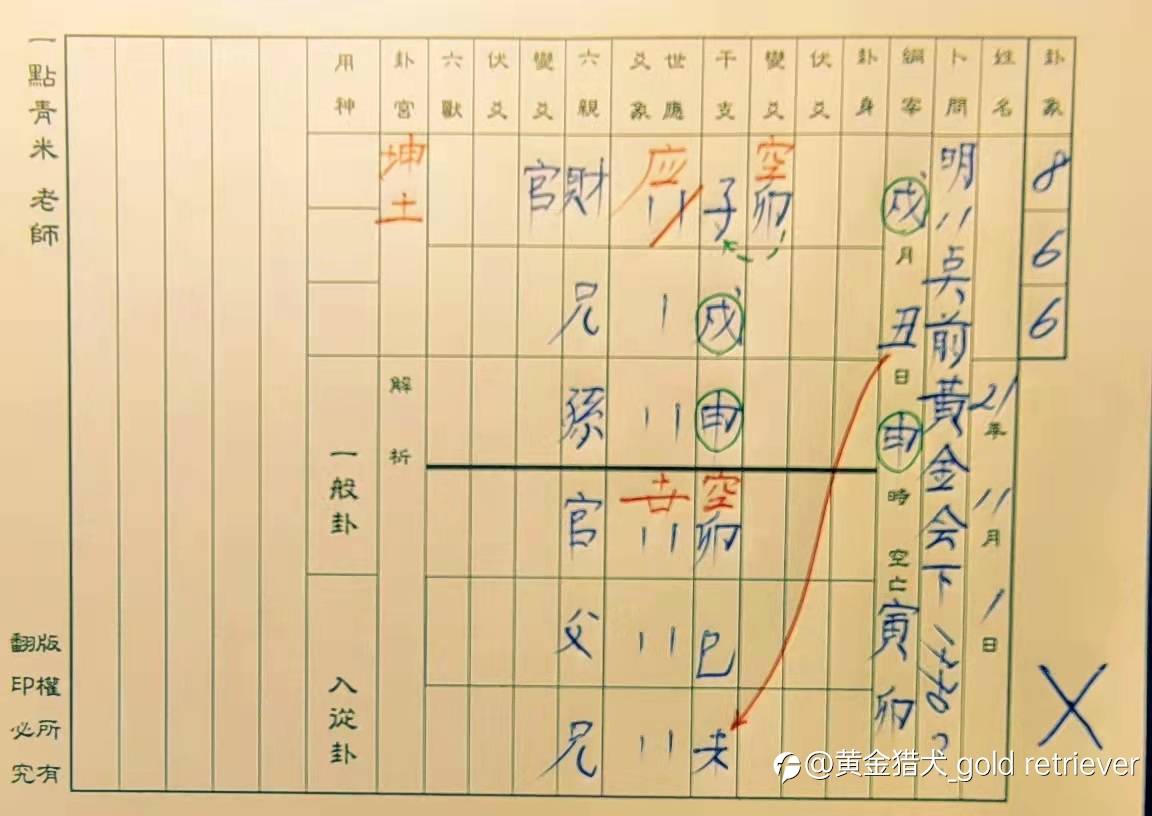 一點青米 老師
卦象
8
6
6
姓名
21年 11月 1日
卜問
明11点前黃金会下
綱宰
戌月
丑日
申時
空亡
寅
卯
卦身
伏爻
變爻
干支
世應爻象
六親
變爻
伏爻
六獸
卦宮
用神
坤土
官 財 应 〢 子 空 卯
兄 〡 戌
孫 〢 申
官 世 〢 空 卯
父 〢 巳
兄 〢 未
解析
一般卦
入從卦
X
版權所有
翻印必究
@黄金猎犬_gold retriever